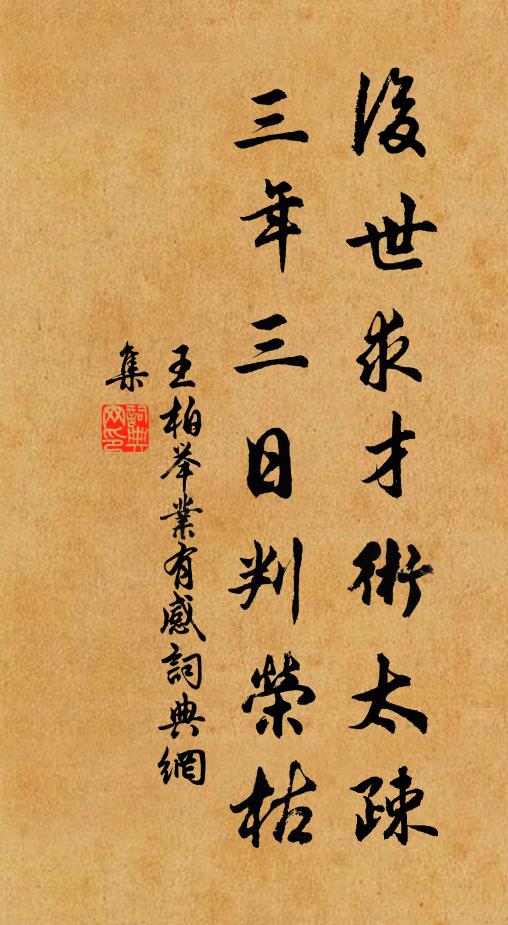 後世求才術太疎
三年三日判榮枯
王柏举業有感詞典網
集
詞典